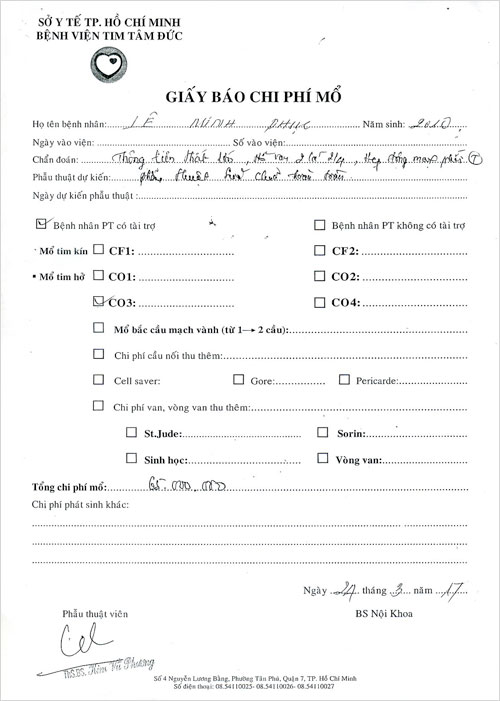 SỞ Y TẾ TP. HỒ CHÍ MINH
BỆNH VIỆN TIM TÂM ĐỨC
GIẤY BÁO CHI PHÍ MỔ
Họ tên bệnh nhân: LÊ MINH PHÚC Năm sinh: 2010
Ngày vào viện: Số vào viện:
Chẩn đoán: Thông liên thất, Hở van 2 lá 2/4, Hẹp động mạch phổi (T)
Phẫu thuật dự kiến: phẫu thuật sửa chữa hoàn toàn
Ngày dự kiến phẫu thuật :
Bệnh nhân PT có tài trợ Bệnh nhân PT không có tài trợ
Mổ tim kín CF1: CF2:
▪ Mổ tim hở CO1: CO2:
CO3: CO4:
Mổ bắc cầu mạch vành (từ 1→ 2 cầu):
Chi phí cầu nối thu thêm:
Cell saver: Gore: Pericarde:
Chi phí van, vòng van thu thêm:
St.Jude: Sorin:
Sinh học: Vòng van:
Tổng chi phí mổ: 65.000.000
Chi phí phát sinh khác:
Ngày 24 tháng 3 năm 17
Phẫu thuật viên BS Nội Khoa
ThS.BS.
Số 4 Nguyễn Lương Bằng, Phường Tân Phú, Quận 7, TP. Hồ Chí Minh
Số điện thoại: 08.54110025- 08.54110026- 08.54110027